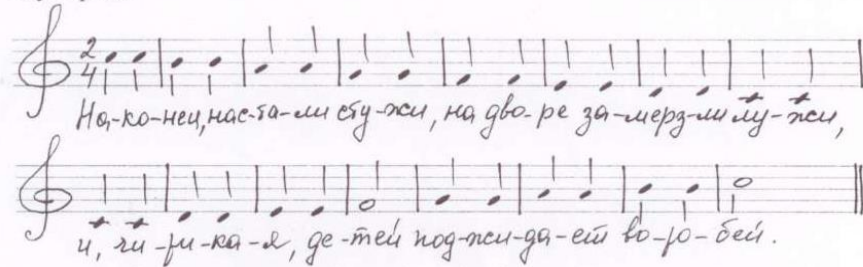 2
4
На-ко-нец, нас-та-ли сту-жи, на дво-ре за-мерз-ли лу-жи,
и, чи-ри-ка-я, де-тей под-жи-да-ет во-ро-бей.